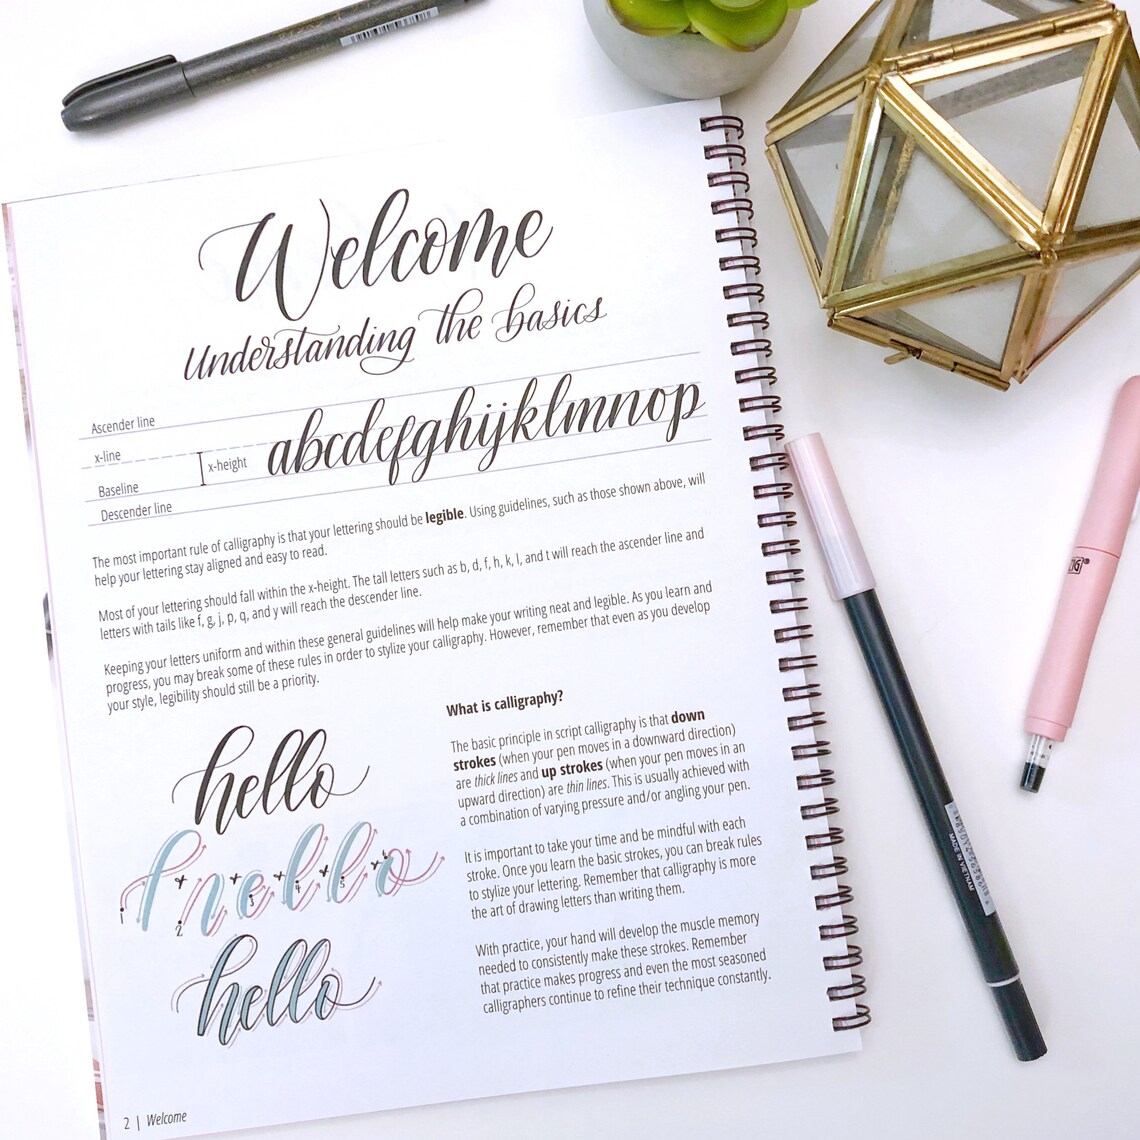 Welcome
Understanding the basics
Ascender line
x-line
x-height
Baseline
Descender line
abcdefghijklmnop
The most important rule of calligraphy is that your lettering should be legible. Using guidelines, such as those shown above, will
help your lettering stay aligned and easy to read.
Most of your lettering should fall within the x-height. The tall letters such as b, d, f, h, k, l, and t will reach the ascender line and
letters with tails like f, g, j, p, q, and y will reach the descender line.
Keeping your letters uniform and within these general guidelines will help make your writing neat and legible. As you learn and
progress, you may break some of these rules in order to stylize your calligraphy. However, remember that even as you develop
your style, legibility should still be a priority.
hello
hello
1 2 3 4 5
hello
What is calligraphy?
The basic principle in script calligraphy is that down
strokes (when your pen moves in a downward direction)
are thick lines and up strokes (when your pen moves in an
upward direction) are thin lines. This is usually achieved with
a combination of varying pressure and/or angling your pen.
It is important to take your time and be mindful with each
stroke. Once you learn the basic strokes, you can break rules
to stylize your lettering. Remember that calligraphy is more
the art of drawing letters than writing them.
With practice, your hand will develop the muscle memory
needed to consistently make these strokes. Remember
that practice makes progress and even the most seasoned
calligraphers continue to refine their technique constantly.
2 | Welcome
MADE IN VIETNAM